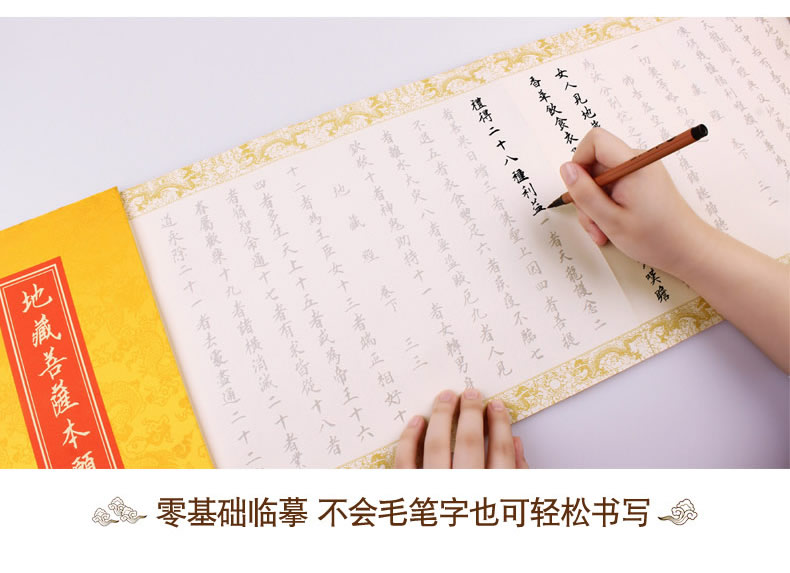 女人見地
香華飲食衣
嘆瞻
禮得二十八種利益一者天龍護念二
者善果日增三者集聖上因四者菩提
不退五者衣食豐足六者疾疫不臨七
者離水火災八者無盜賊厄九者人見
欽敬十者神鬼助持十一者女轉男身
地藏經 卷下 三三
十二者為王臣女十三者端正相好十
四者多生天上十五者或為帝王十六
者宿智命通十七者有求皆從十八者
眷屬歡樂十九者諸橫消滅二十者業
道永除二十一者去處盡通二十二
地藏菩薩本願
零基础临摹 不会毛笔字也可轻松书写